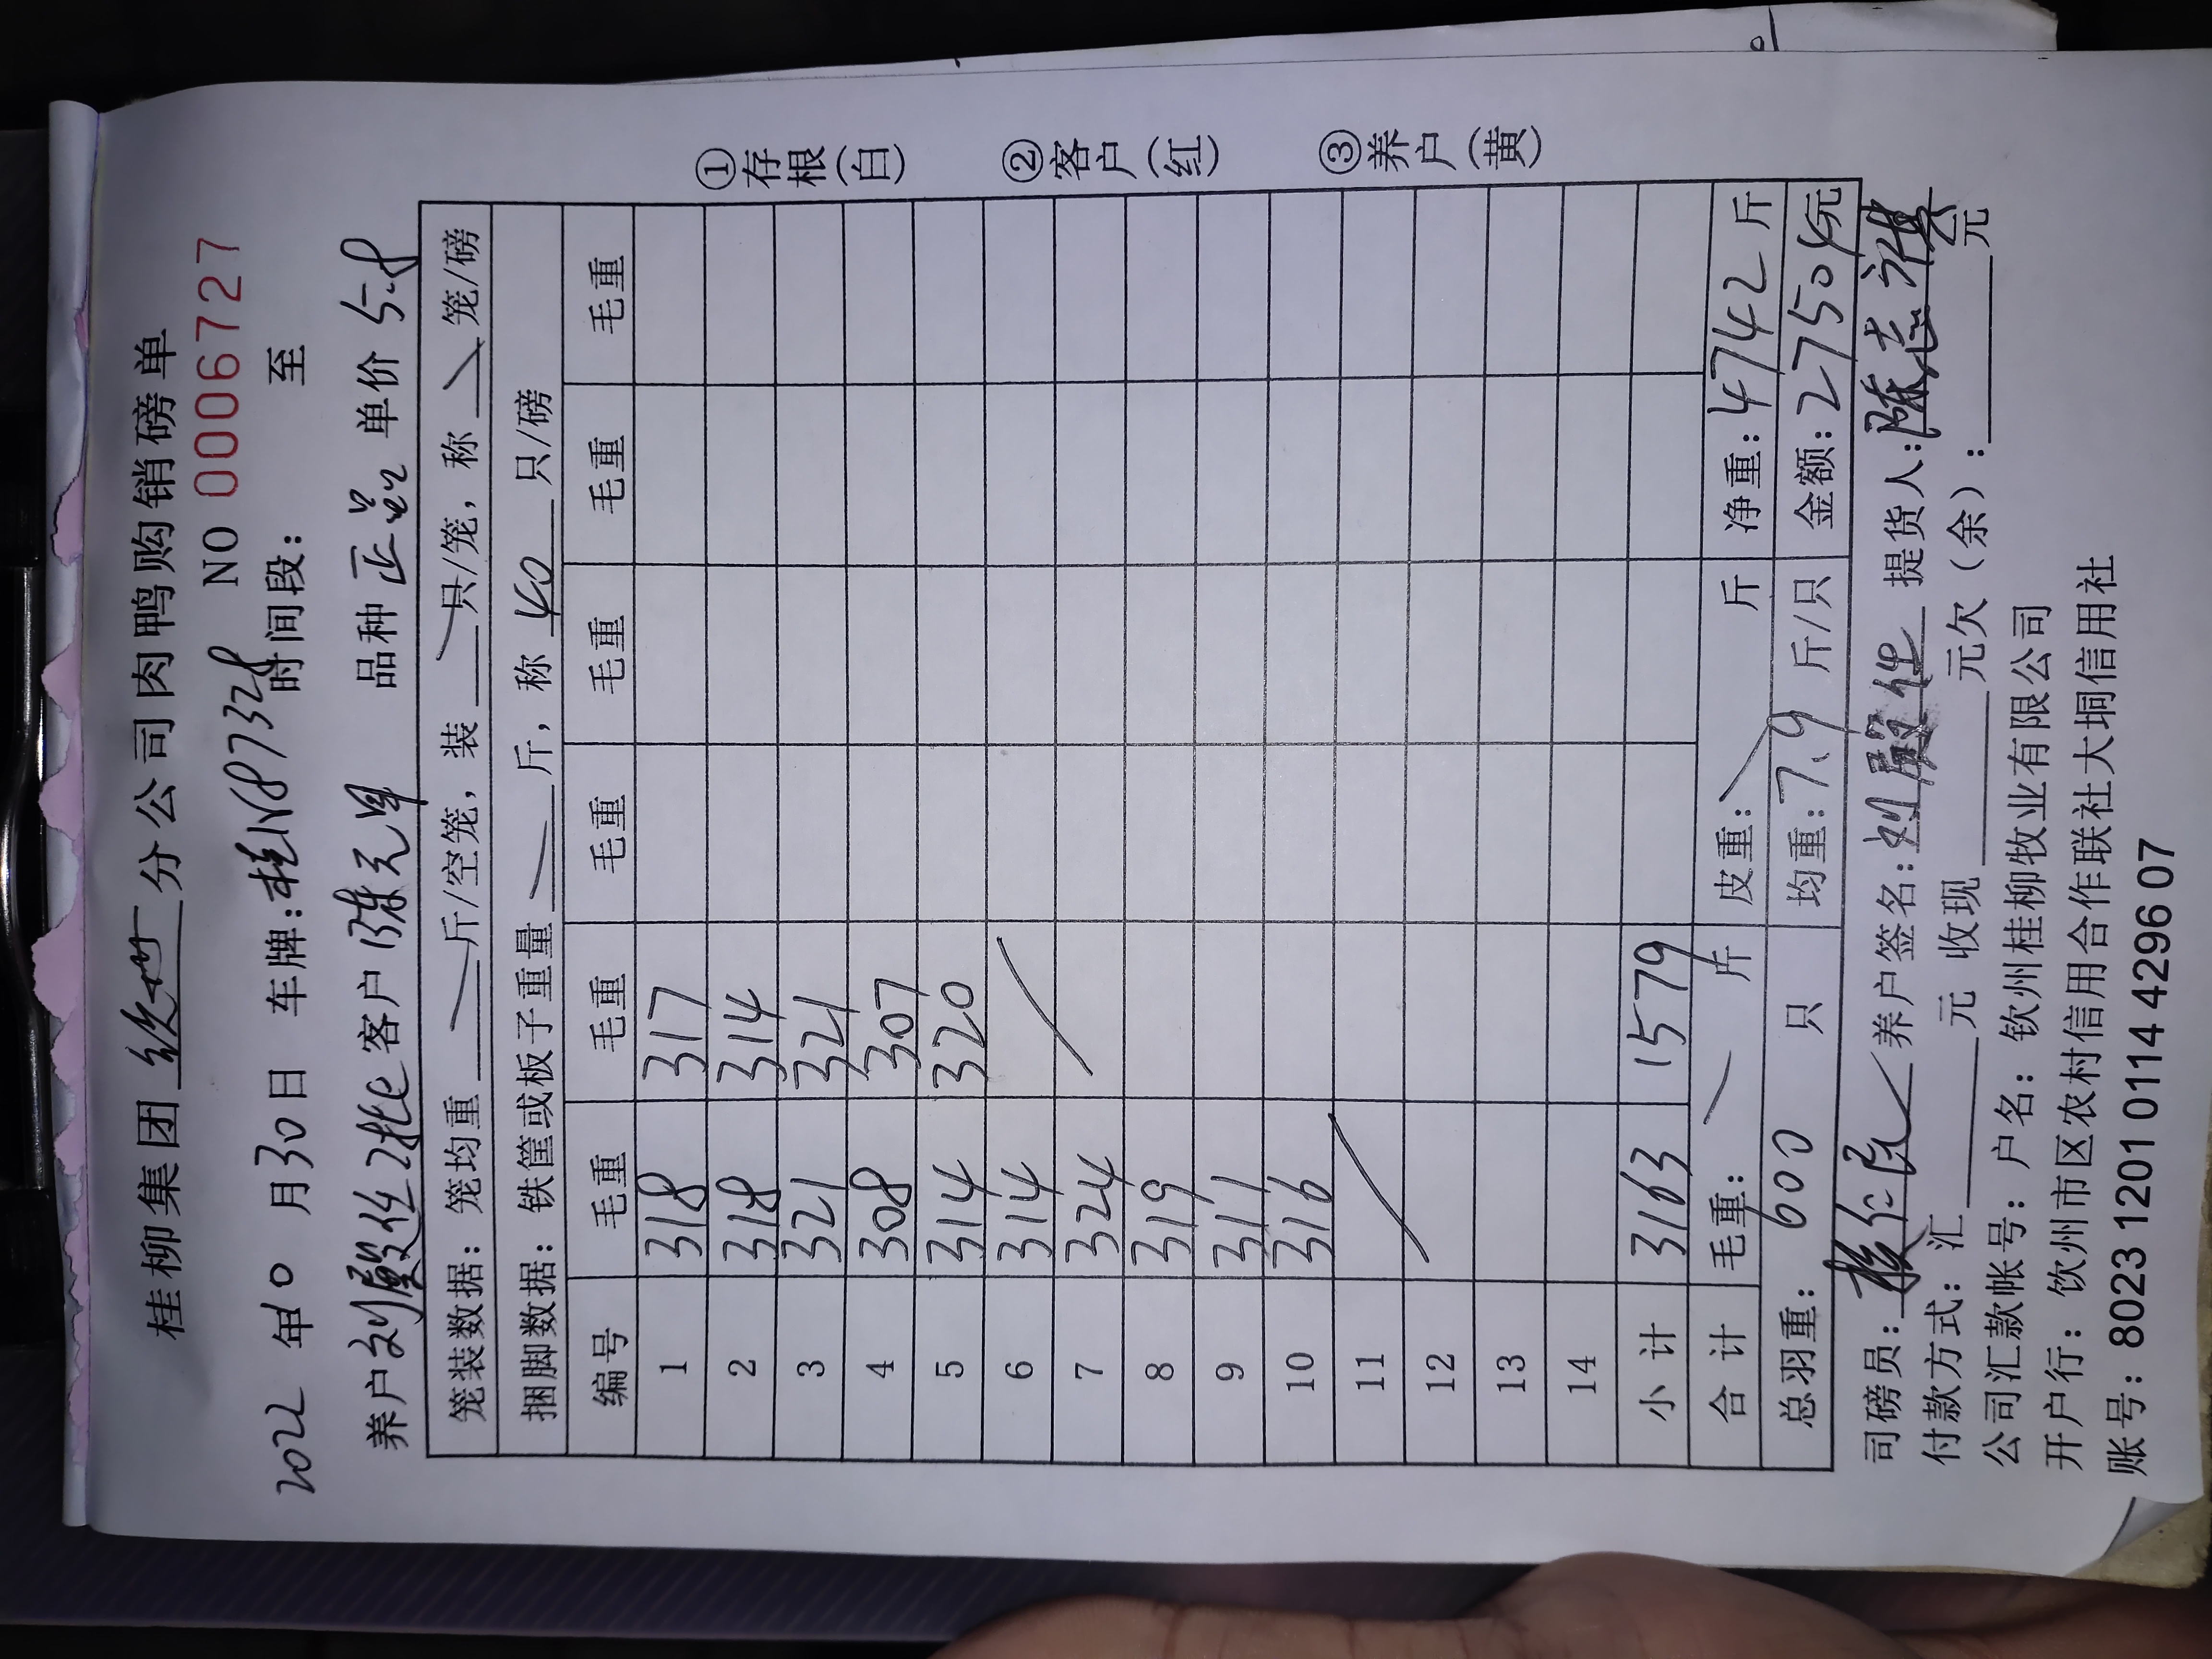 桂柳集团 钦州 分公司肉鸭购销磅单
NO 0006727
2022 年 10 月 30 日 车牌:桂N87328 时间段: 至
养户 刘殿仕2批 客户 陈元 品种 正品 单价 5.8
笼装数据: 笼均重 斤/空笼, 装 只/笼, 称 笼/磅
捆脚数据: 铁筐或板子重量 斤, 称 40 只/磅
编号 毛重 毛重 毛重 毛重 毛重 毛重
1 318 317
2 318 314
3 321 321
4 308 307
5 314 320
6 314
7 324
8 319
9 311
10 316
11
12
13
14
小计 3163 1579
合计 毛重: 斤 皮重: 斤 净重: 4742 斤
总羽重: 600 只 均重: 7.9 斤/只 金额: 27504元
司磅员: 养户签名: 刘殿仕 提货人: 陈志
付款方式: 汇 元 收现 元欠(余): 元
公司汇款帐号: 户名: 钦州桂柳牧业有限公司
开户行: 饮州市区农村信用合作联社大垌信用社
账号: 8023 1201 0114 4296 07
①存根(白)
②客户(红)
③养户(黄)